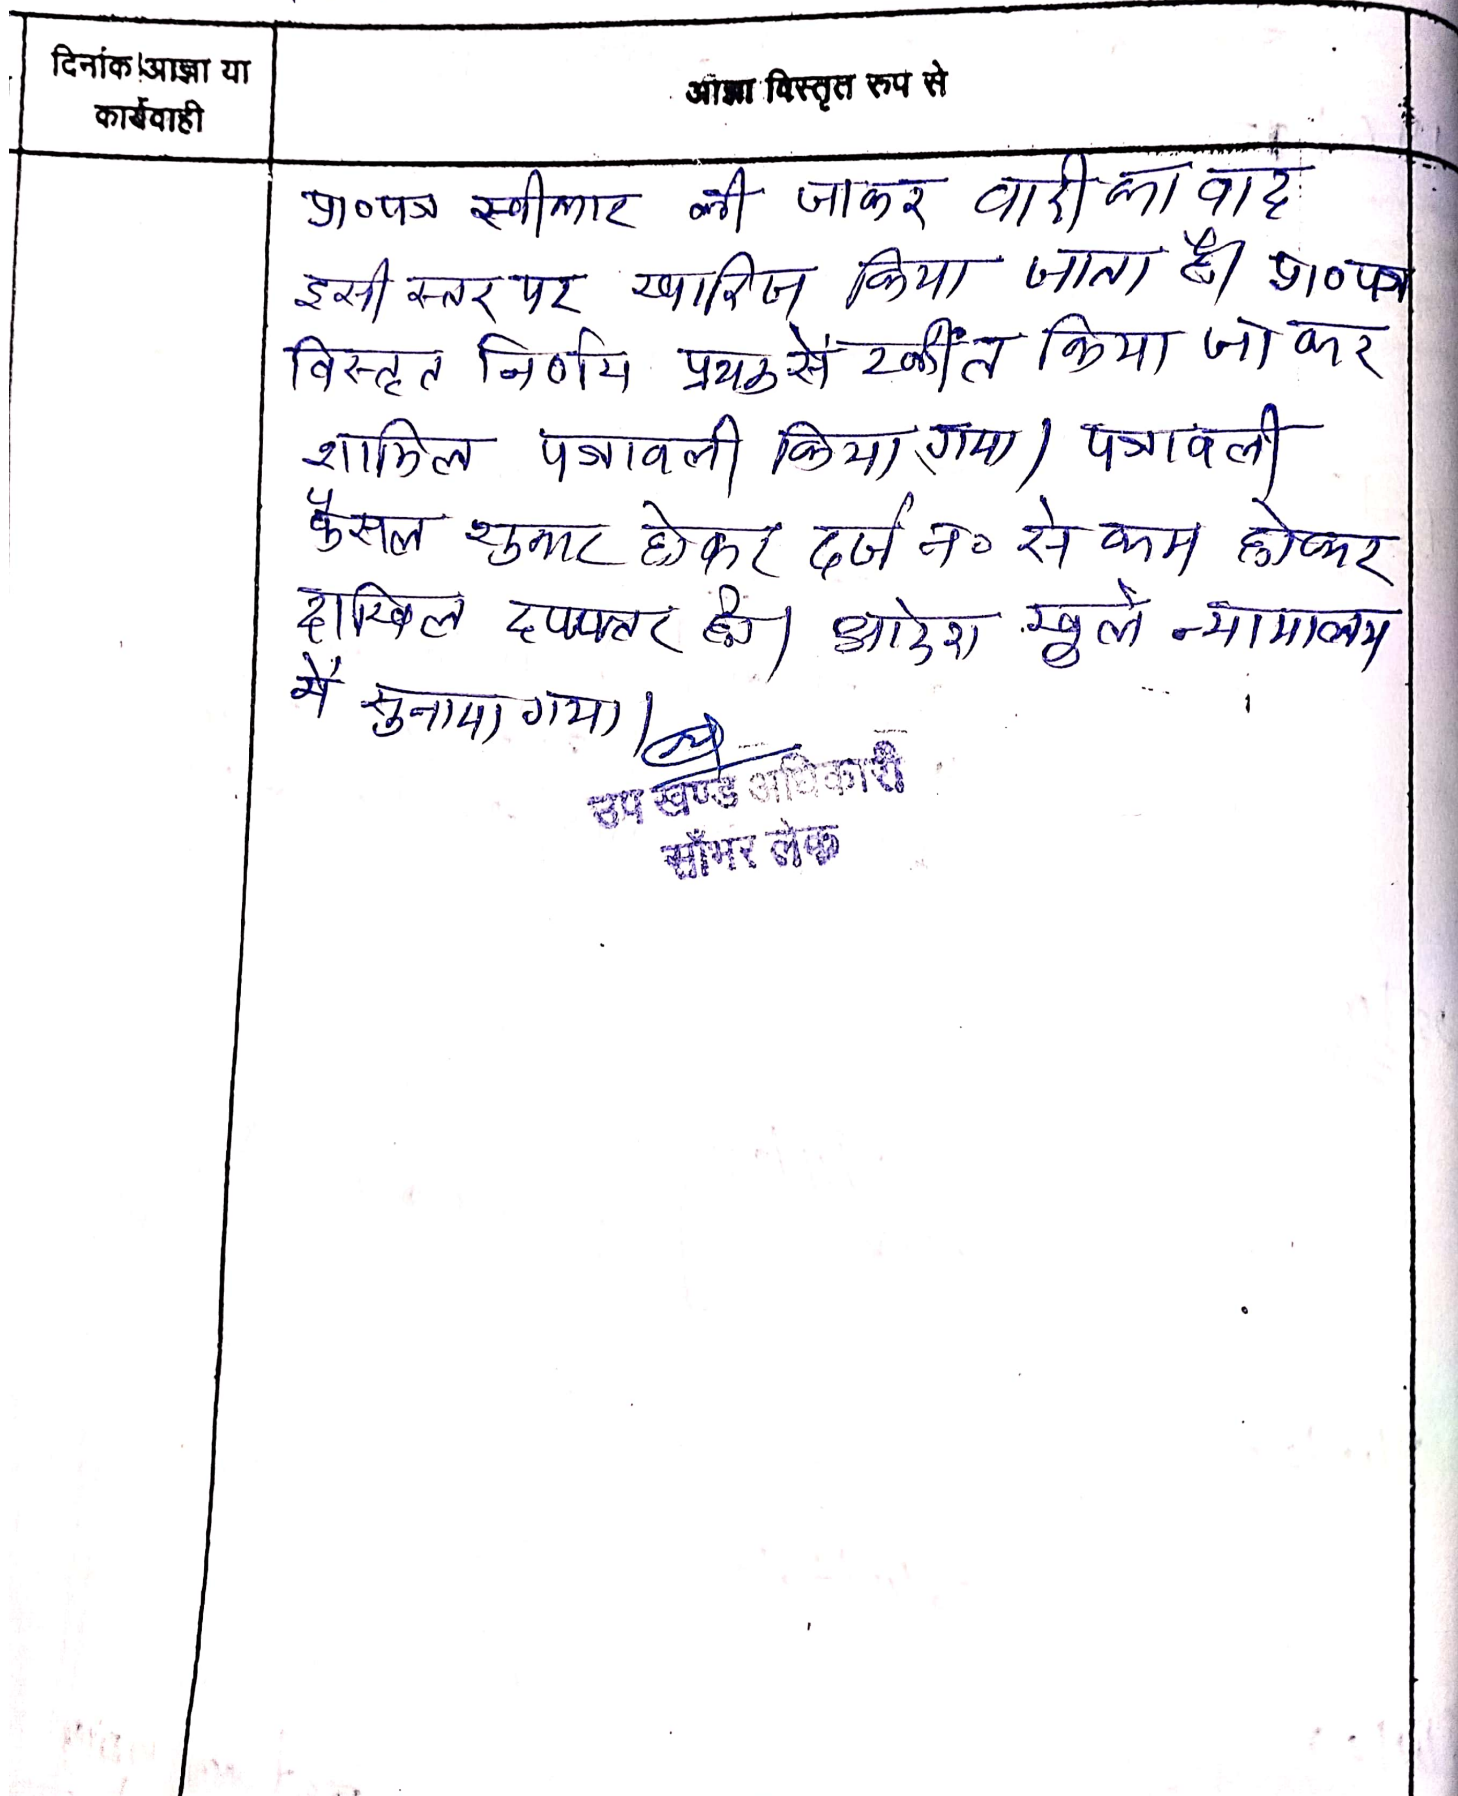 दिनांक आज्ञा या
कार्यवाही
आज्ञा विस्तृत रुप से
प्रा०पत्र स्वीकार की जाकर वादी का वाद
इसी स्तर पर खारिज किया जाता है। प्रा०पत्र
विस्तृत निर्णय प्रथक से किया जाकर
शामिल पत्रावली किया गया। पत्रावली
फैसल शुमार होकर दर्ज न० से कम होकर
दाखिल दफ्तर हो। आदेश खुले न्यायालय
में सुनाया गया।
उप खण्ड अधिकारी
साँभर लेक